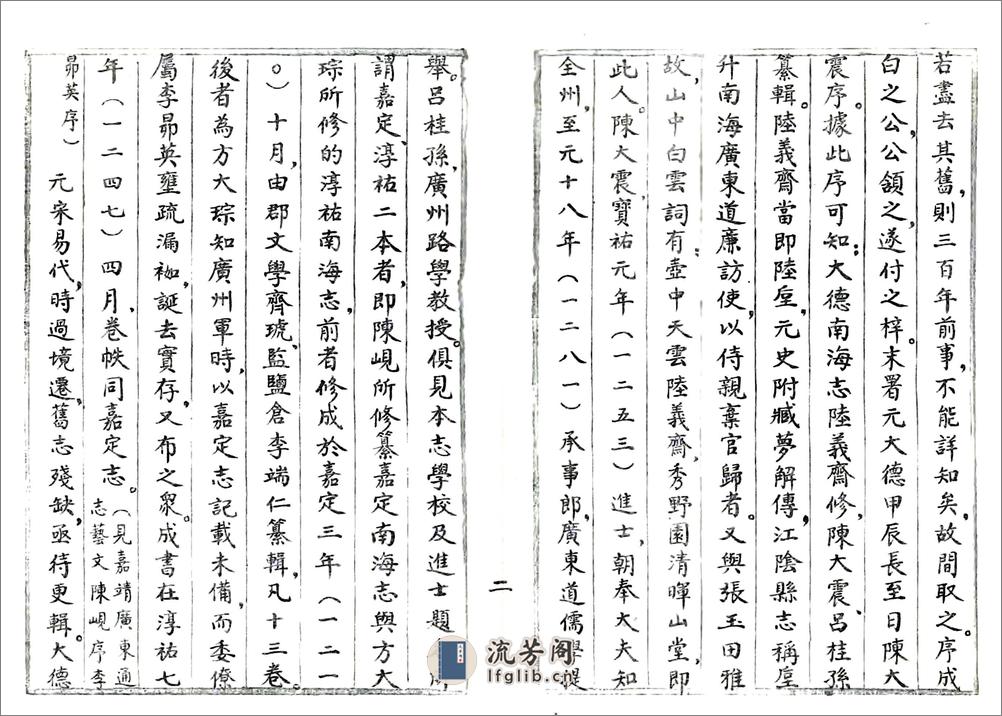 若盡去其舊，則三百年前事，不能詳知矣，故間取之。序成
白之公，公頷之，遂付之梓。末署元大德甲辰長至日陳大
震序。據此序可知：大德南海志陸義齋修，陳大震、呂桂孫
纂輯。陸義齋當即陸垕，元史附臧夢解傳，江陰縣志稱垕
升南海廣東道廉訪使，以侍親棄官歸者。又與張玉田雅
故，山中白雲詞有：壺中天雲陸義齋，秀野園清暉山堂，即
此人。陳大震，寶祐元年（一二五三）進士，朝奉大夫知
全州，至元十八年（一二八一）承事郎，廣東道儒學提
舉。呂桂孫，廣州路學教授。俱見本志學校及進士題
謂嘉定、淳祐二本者，即陳峴所修纂嘉定南海志與方大
琮所修的淳祐南海志，前者修成於嘉定三年（一二一
〇）十月，由郡文學齊琥、監鹽倉李端仁纂輯，凡十三卷。
後者為方大琮知廣州軍時，以嘉定志記載未備，而委僚
屬李昴英壅疏漏袽，誕去實存，又布之眾。成書在淳祐七
年（一二四七）四月，卷帙同嘉定志。（見嘉靖廣東通
志藝文陳峴序李
昴英序）　元宋易代，時過境遷，舊志殘缺，亟待更輯。大德
二
流芳阁
lfglib.cn